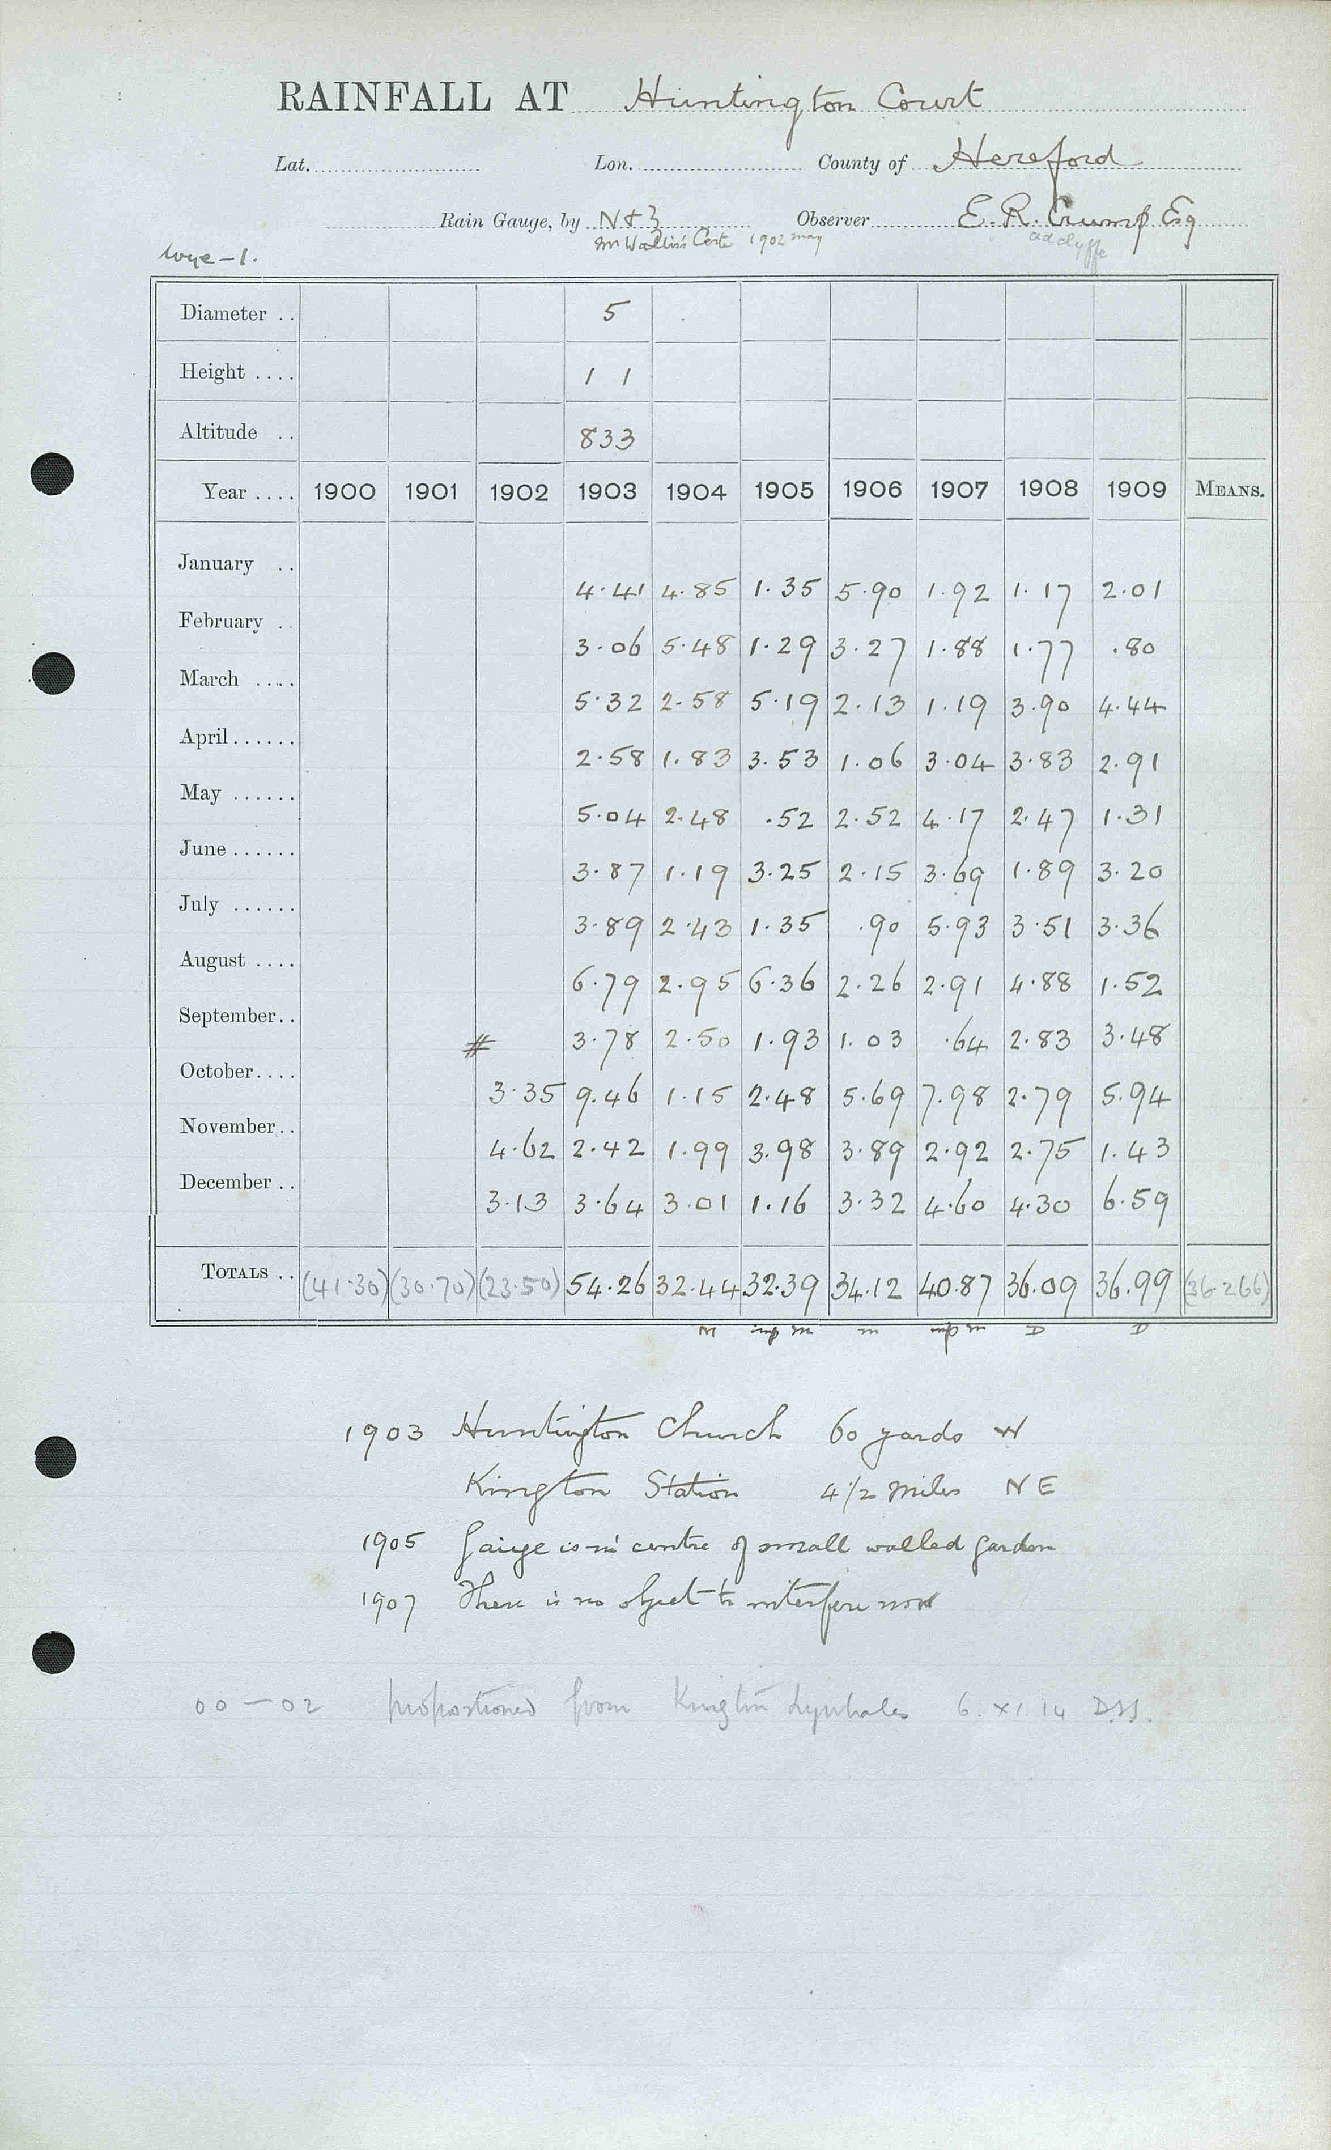 RAINFALL AT Huntington Court
Lat. Lon. County of Hereford
Rain Gauge, by N & Z Observer E. R. Crump Esq
Cert 1902 May adclyffe
Wye - 1.
Diameter .. 5
Height .... 1 1
Altitude .. 833
Year .... 1900 1901 1902 1903 1904 1905 1906 1907 1908 1909 MEANS.
January .. 4.41 4.85 1.35 5.90 1.92 1.17 2.01
February .. 3.06 5.48 1.29 3.27 1.88 1.77 .80
March .... 5.32 2.58 5.19 2.13 1.19 3.90 4.44
April...... 2.58 1.83 3.53 1.06 3.04 3.83 2.91
May ...... 5.04 2.48 .52 2.52 4.17 2.47 1.31
June...... 3.87 1.19 3.25 2.15 3.69 1.89 3.20
July ...... 3.89 2.43 1.35 .90 5.93 3.51 3.36
August .... 6.79 2.95 6.36 2.26 2.91 4.88 1.52
September.. # 3.78 2.50 1.93 1.03 .64 2.83 3.48
October.... 3.35 9.46 1.15 2.48 5.69 7.98 2.79 5.94
November.. 4.62 2.42 1.99 3.98 3.89 2.92 2.75 1.43
December .. 3.13 3.64 3.01 1.16 3.32 4.60 4.30 6.59
TOTALS .. (41.30) (30.70) (23.50) 54.26 32.44 32.39 34.12 40.87 36.09 36.99 (36.266)
M mp m m mp m D D
1903 Huntington Church 60 yards W
Kington Station 4 1/2 miles NE
1905 Gauge is in centre of small walled garden
1907 There is no object to interfere now
00 - 02 proportioned from Kington Lynhales 6.XI.14